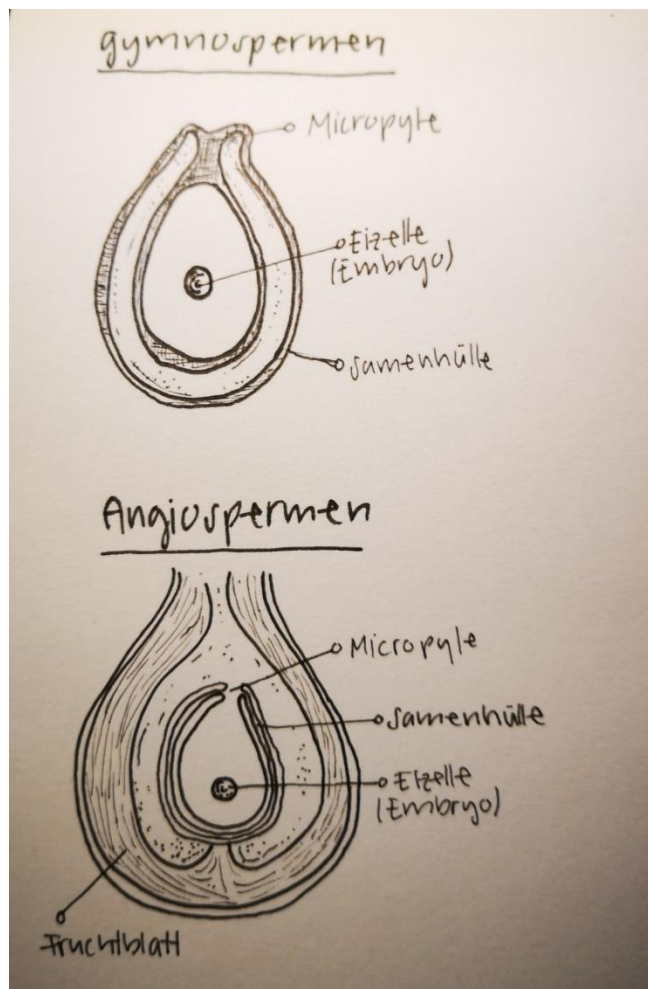 gymnospermen
Micropyle
Eizelle
(Embryo)
Samenhülle
Angiospermen
Micropyle
Samenhülle
Eizelle
(Embryo)
Fruchtblatt